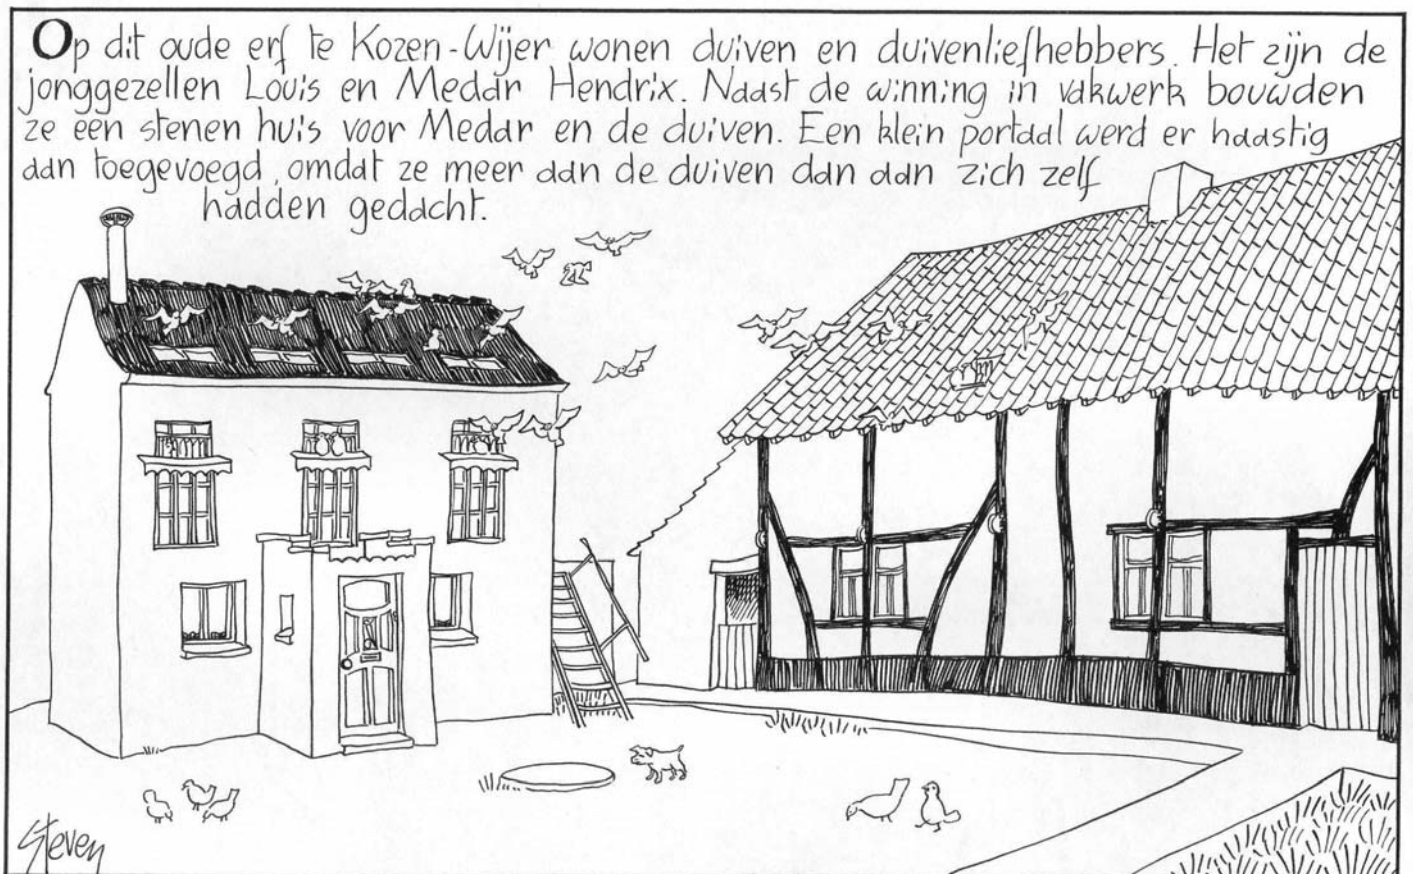 Op dit oude erf te Kozen-Wijer wonen duiven en duivenliefhebbers. Het zijn de
jonggezellen Louis en Medar Hendrix. Naast de winning in vakwerk bouwden
ze een stenen huis voor Medar en de duiven. Een klein portaal werd er haastig
aan toegevoegd, omdat ze meer aan de duiven dan aan zich zelf
hadden gedacht.
Steven